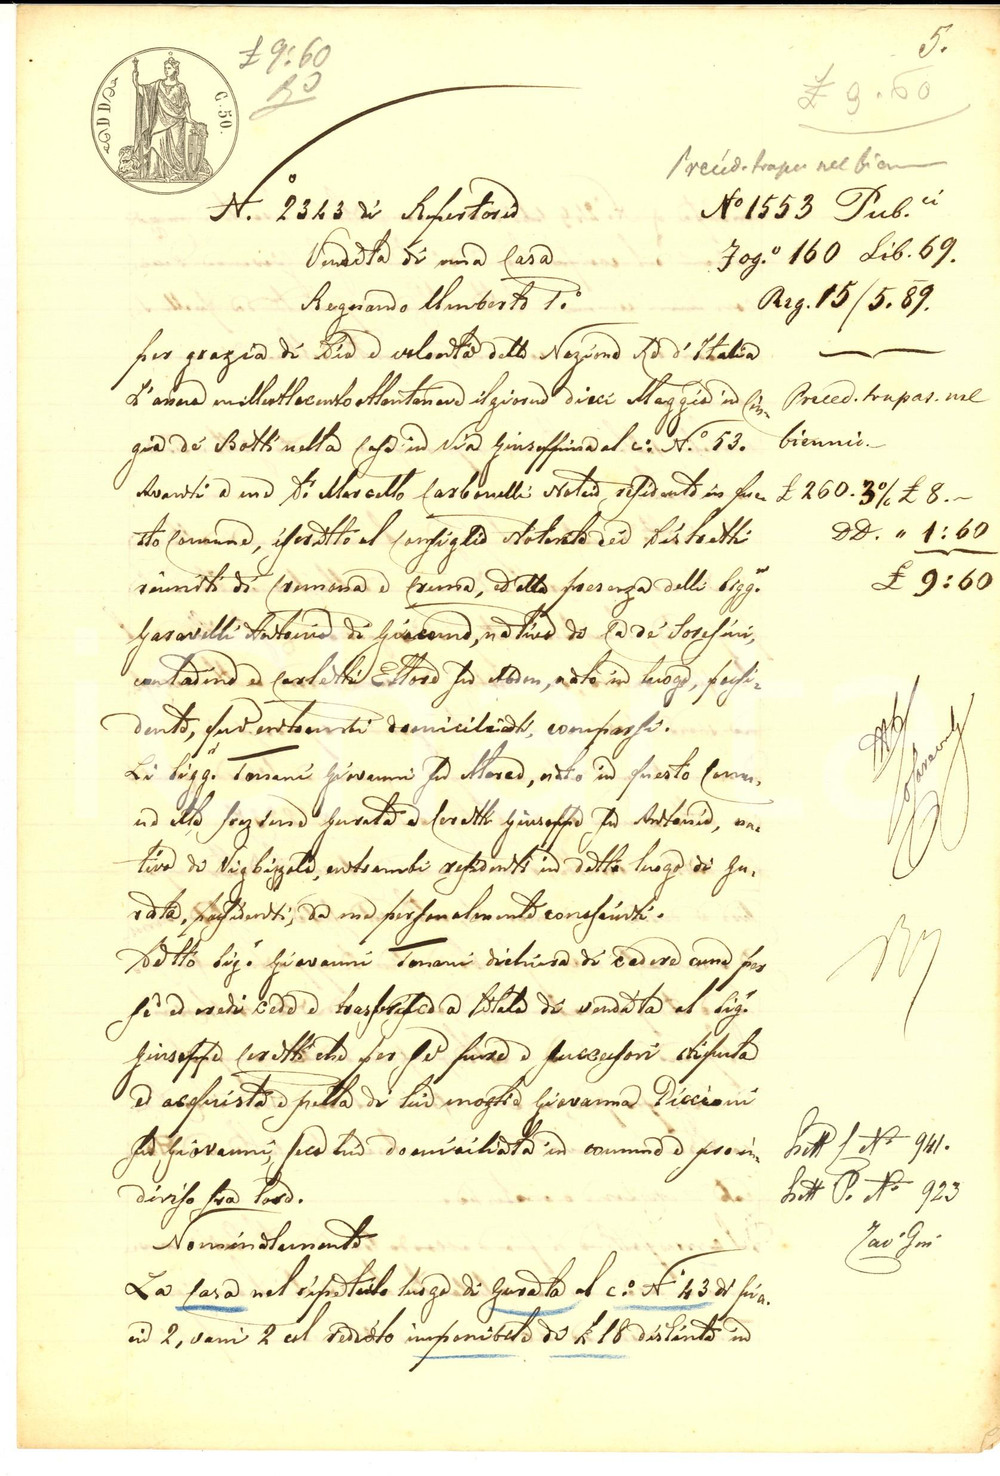 £ 9:60
5.
£ 9.60
DD
C. 50.
Preced. trapas. nel bien
N.° 2343 di Repertorio
N° 1553 Pub.ci
Vendita di una Casa
Fog.° 160 Lib. 69.
Regnando Umberto I.°
Reg. 15/5.89.
per grazia di Dio e volontà della Nazione Re d'Italia
L'anno milleottocentottantanove il giorno dieci Maggio in Cin-
Preced. trapas. nel
gia de' Botti nella Casa in Via Giuseppina al c.° N.° 53.
biennio.
Avanti a me D.r Marcello Carbonelli Notaio, residente in que-
£ 260. 3% £ 8.-
sto Comune, iscritto al Consiglio Notarile dei Distretti
DD. " 1:60
riuniti di Cremona e Crema, ed alla presenza delli Sigg.ri
£ 9:60
Garavelli Antonio di Giacomo, nativo di Ca de' Soresini,
contadino e Carletti Ettore fu Abdon, nato in luogo, possi-
dente, qui entrambi domiciliati, comparsi.
Li Sigg.ri Tonani Giovanni fu Marco, nato in questo Comu-
ne alla frazione Gurata e Ceretti Giuseppe fu Antonio, na-
tivo di Vighizzolo, entrambi residenti in detto luogo di Gu-
rata, possidenti, da me personalmente conosciuti.
Detto Sig.r Giovanni Tonani dichiara di cedere come per
sè ed eredi cede e trasferisce a titolo di vendita al Sig.r
Giuseppe Ceretti che per sè pure e successori accetta
ed acquista, e per la di lui moglie Giovanna Piccioni
fu Giovanni, seco lui domiciliata in comune e proin-
Lett. N° 941.
diviso fra loro.
Lett P. N° 923
Nominatamente
La Casa nel ripetuto luogo di Gurata al c.° N.° 43 di pia-
ni 2, vani 2 col reddito imponibile di £ 18 distinta in